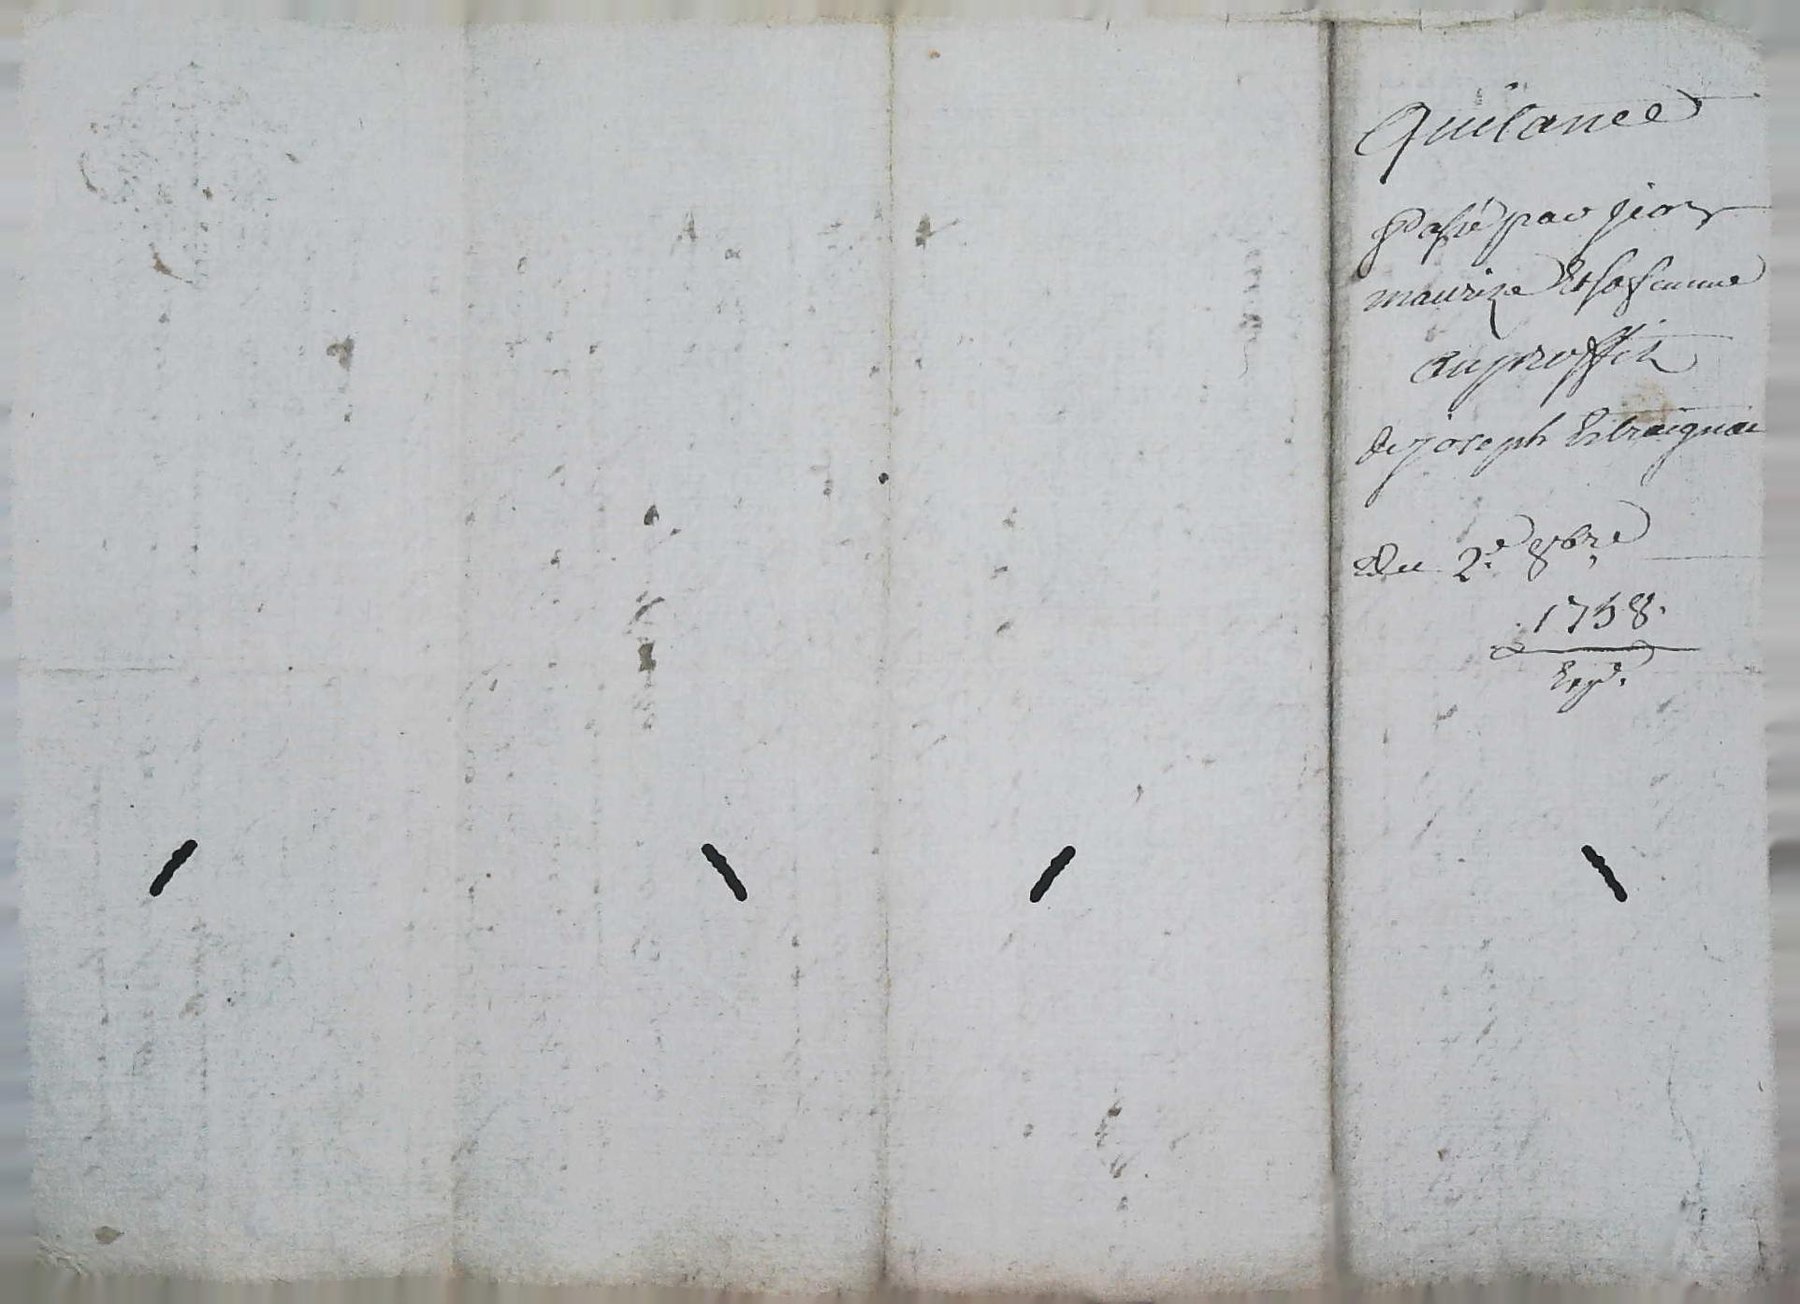 Quitance
passé par jean
maurize Et sa femme
au proffit
de joseph
Du 2e 8bre
1758.
Expd.